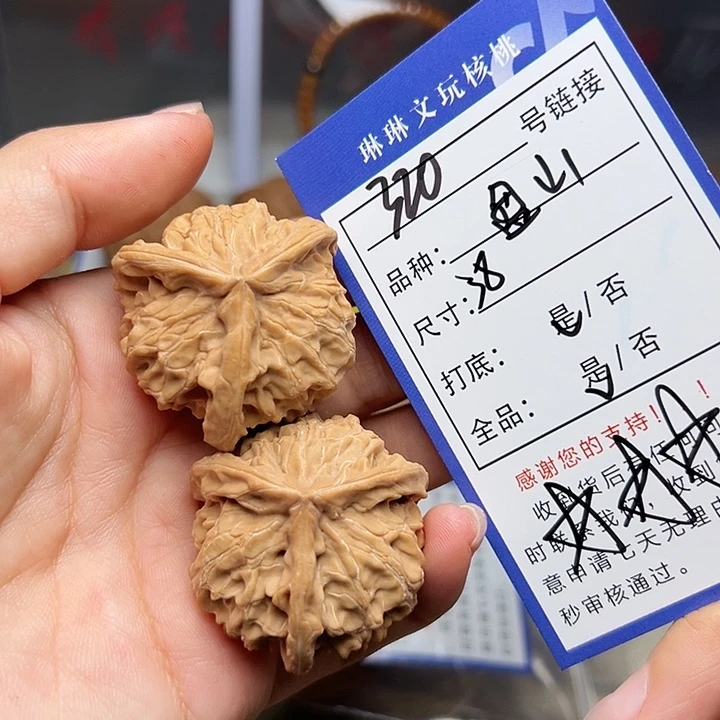 琳琳文玩核桃
320 号链接
品种：盘山
尺寸：38
打底：是/否
全品：是/否
感谢您的支持！！
收到货后有任何问
时联系我，收到
意申请七天无理由
秒审核通过。